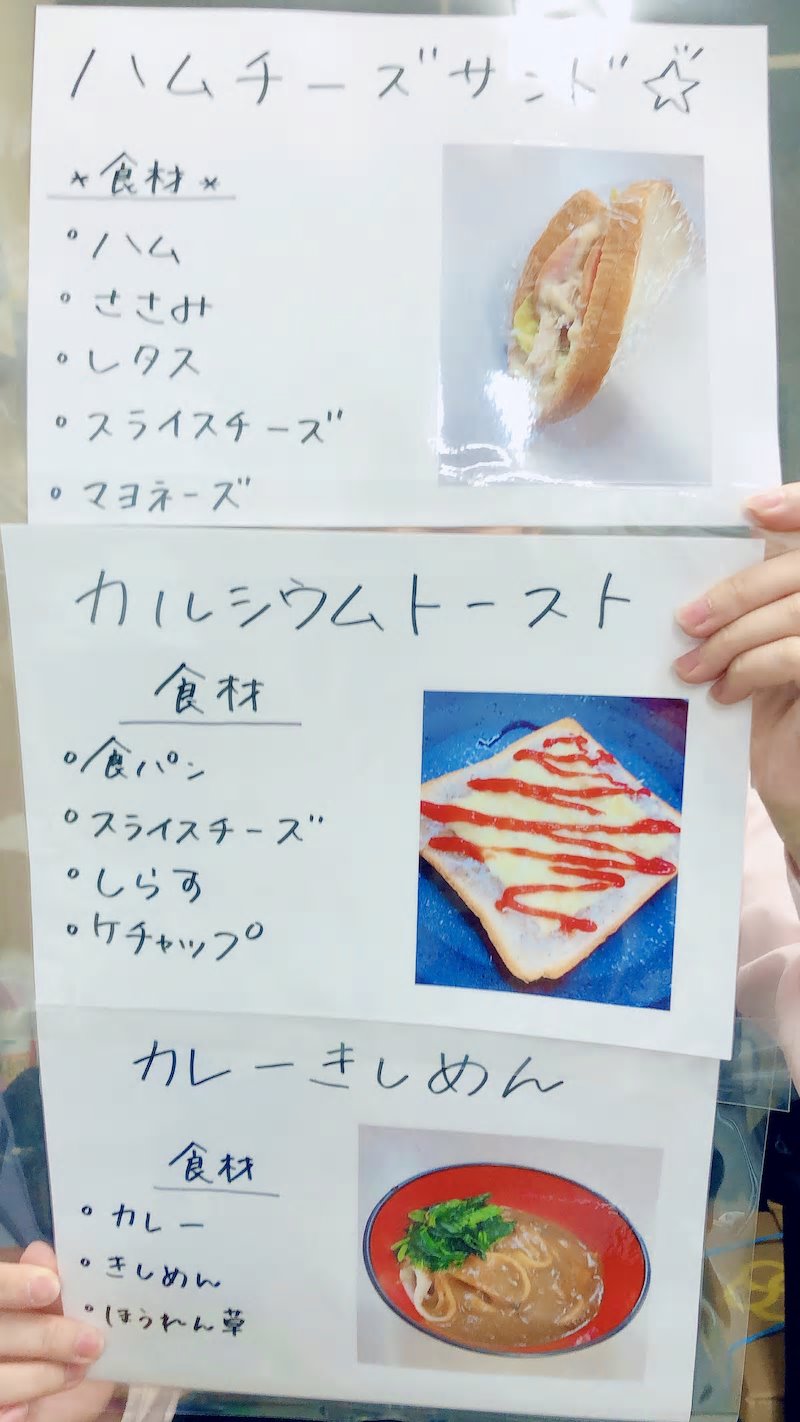 ハムチーズサンド☆
*食材*
° ハム
° ささみ
° レタス
° スライスチーズ
° マヨネーズ
カルシウムトースト
食材
° 食パン
° スライスチーズ
° しらす
° ケチャップ
カレーきしめん
食材
° カレー
° きしめん
° ほうれん草